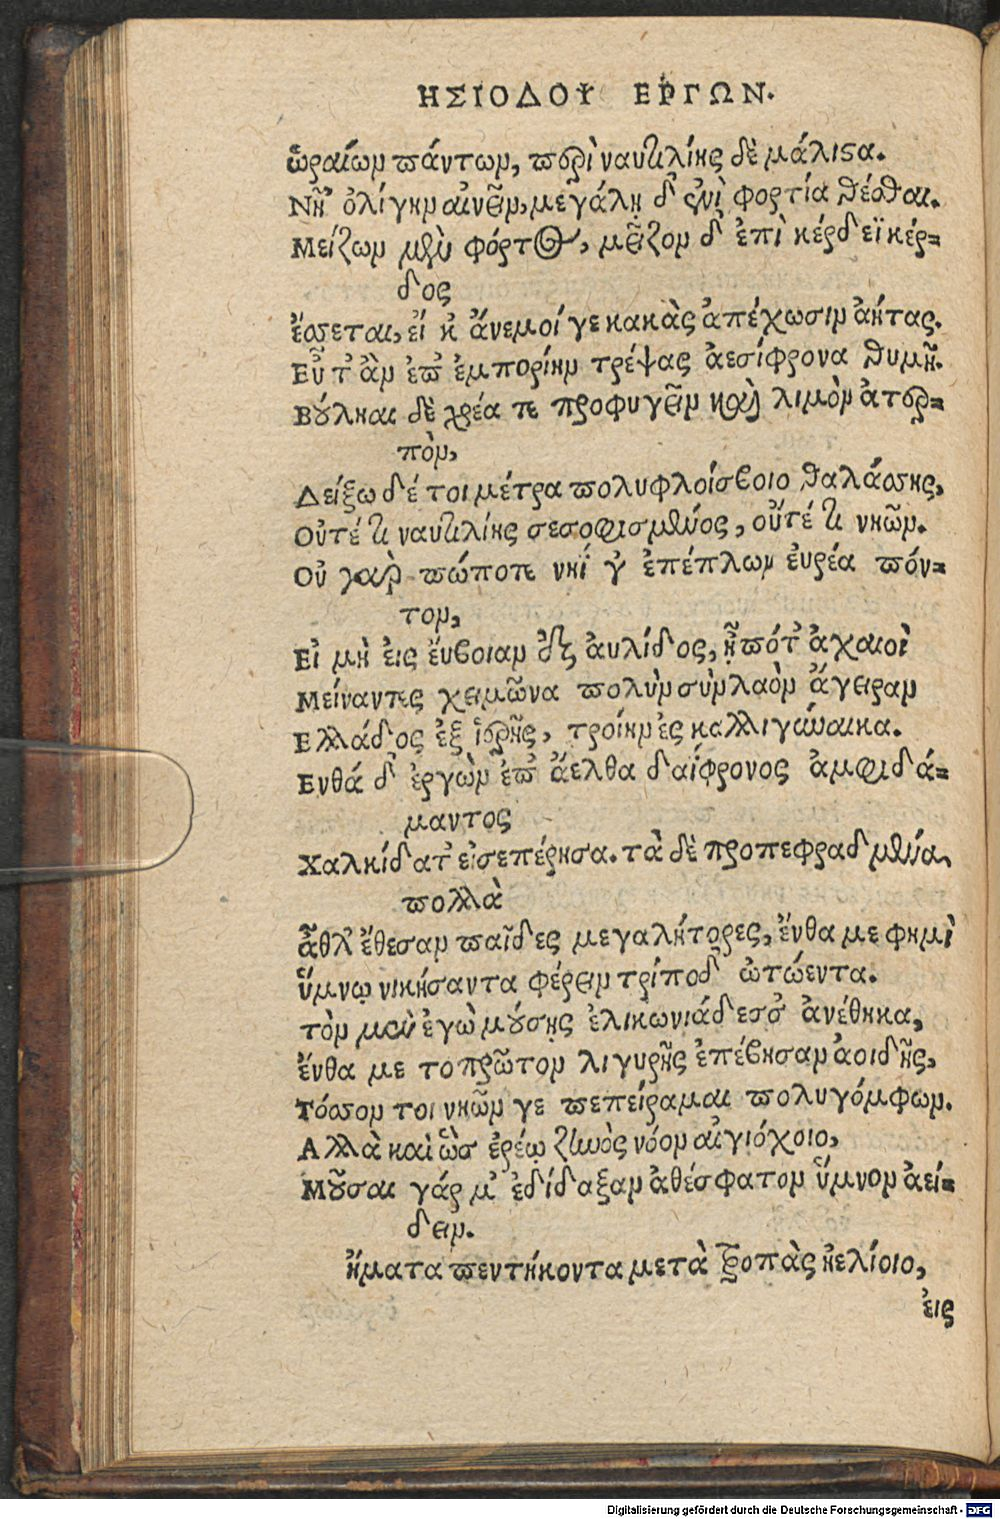 ΗΣΙΟΔΟΥ ΕΡΓΩΝ.
ὡραίων πάντων, περὶ ναυτιλίης δὲ μάλιστα.
Νῆ' ὀλίγην αἰνεῖν, μεγάλῃ δ' ἐνὶ φορτία θέσθαι.
Μείζων μὲν φόρτος, μεῖζον δ' ἐπὶ κέρδεϊ κέρ=
δος
ἔσσεται, εἴ κ' ἄνεμοί γε κακὰς ἀπέχωσιν ἀήτας.
Εὖτ' ἂν ἐπ' ἐμπορίην τρέψας ἀεσίφρονα θυμὸν.
Βούληαι δὲ χρέα τε προφυγεῖν καὶ λιμὸν ἀτερ=
πὸν,
Δείξω δέ τοι μέτρα πολυφλοίσβοιο θαλάσσης,
Οὔτέ τι ναυτιλίης σεσοφισμένος, οὔτέ τι νηῶν.
Οὐ γὰρ πώποτε νηΐ γ' ἐπέπλων εὐρέα πόν=
τον,
Εἰ μὴ εἰς εὔβοιαν ἐξ αὐλίδος, ᾗ πότ' ἀχαιοὶ
Μείναντες χειμῶνα πολὺν σὺν λαὸν ἄγειραν
Ελλάδος ἐξ ἱερῆς, τροίην ἐς καλλιγύναικα.
Ενθά δ' ἐργὼν ἐπ' ἄελθα δαΐφρονος ἀμφιδά=
μαντος
Χαλκίδα τ' εἰσεπέρησα. τὰ δὲ προπεφραδμένα
πολλὰ
ἆθλ' ἔθεσαν παῖδες μεγαλήτορες, ἔνθα με φημὶ
ὕμνῳ νικήσαντα φέρειν τρίποδ' ὠτώεντα.
τὸν μὲν ἐγὼ μούσῃς ἑλικωνιάδεσσ' ἀνέθηκα,
ἔνθα με τοπρῶτον λιγυρῆς ἐπέβησαν ἀοιδῆς,
Τόσσον τοι νηῶν γε πεπείραμαι πολυγόμφων.
Αλλὰ καὶ ὣσ ἐρέω ζηνὸς νόον αἰγιόχοιο,
Μοῦσαι γάρ μ' ἐδίδαξαν ἀθέσφατον ὕμνον ἀεί=
δειν.
ἤματα πεντήκοντα μετὰ τροπὰς ἠελίοιο,
εἰς
Digitalisierung gefördert durch die Deutsche Forschungsgemeinschaft - DFG